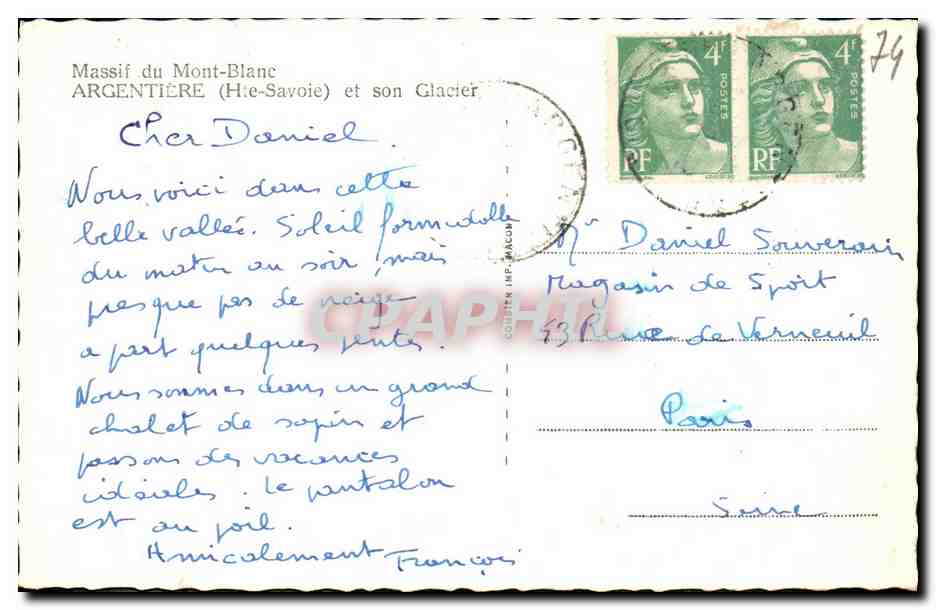 Massif du Mont-Blanc
ARGENTIÈRE (Hte-Savoie) et son Glacier
Cher Daniel.
Nous voici dans cette
belle vallée. Soleil formidable
du matin au soir, mais
presque pas de neige
a part quelques pentes.
Nous sommes dans un grand
chalet de sapin et
passons des vacances
idéales. Le pantalon
est au poil.
Amicalement François
COMBIER IMP. MACON
4F
POSTES
RF
4F
POSTES
RF
74
Mr Daniel Souverain
Magasin de Sport
53 Rue de Verneuil
Paris
Seine
CPAPHIL